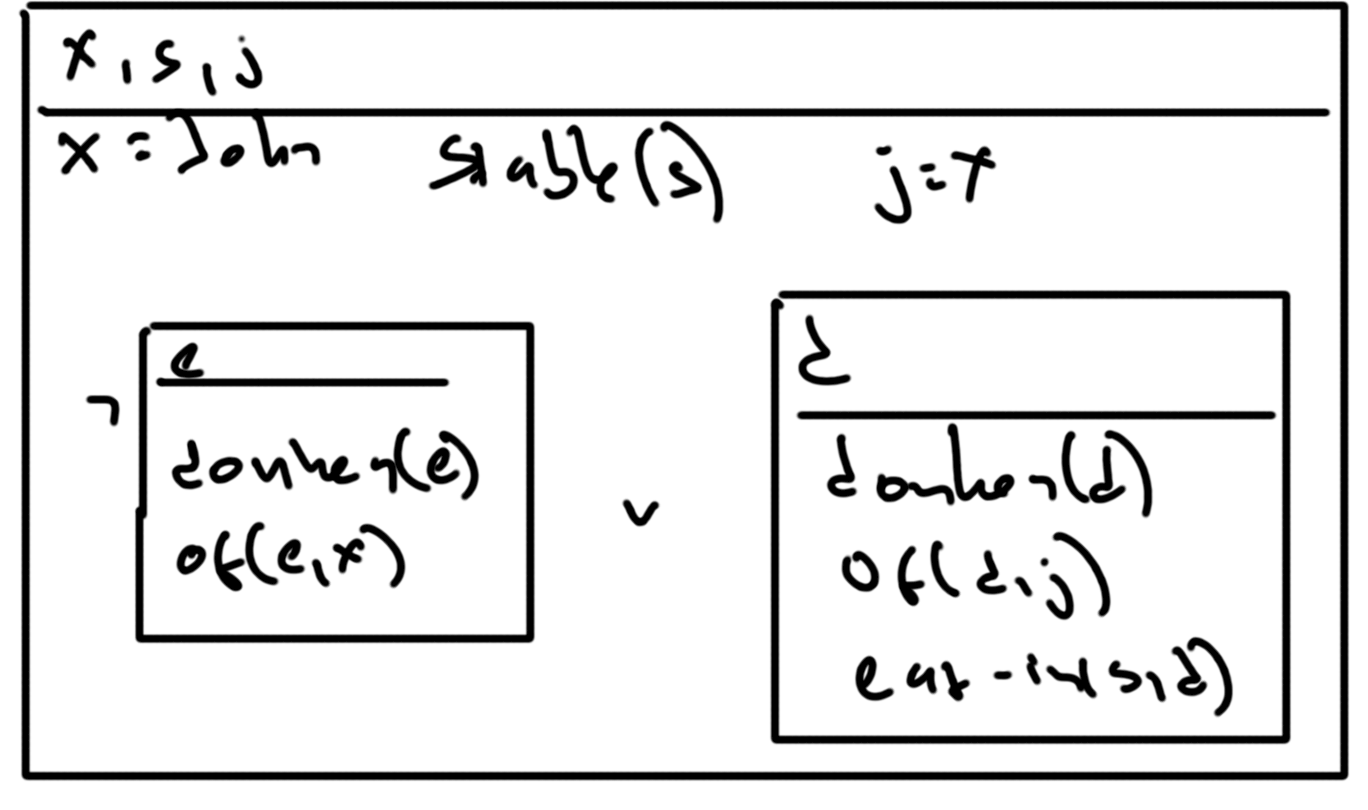 x, s, j
x = John stable(s) j = x
e
¬
donkey(e)
of(e, x)
∨
d
donkey(d)
of(d, j)
eat-in(s, d)